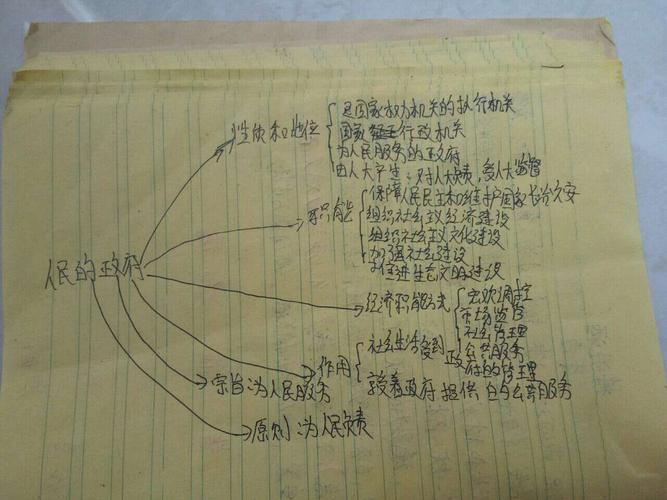 人民的政府
性质和地位
是国家权力机关的执行机关
国家行政机关
为人民服务的政府
由人大产生,对人大负责,受人大监督
职能
保障人民民主和维护国家长治久安
组织社会主义经济建设
组织社会主义文化建设
加强社会建设
促进生态文明建设
经济职能方式
宏观调控
市场监管
社会管理
公共服务
作用
社会生活受到政府的管理
享着政府提供的公共服务
宗旨:为人民服务
原则:为人民负责